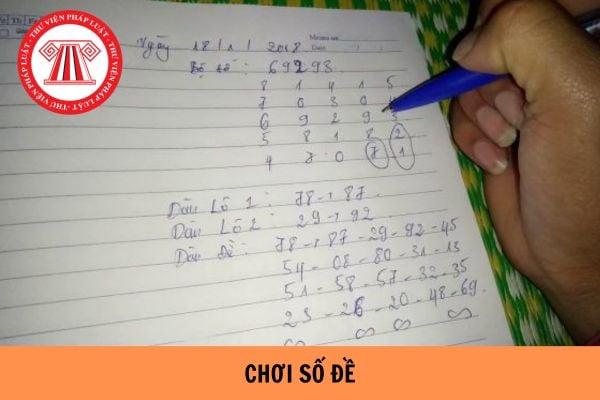 THƯ VIỆN PHÁP LUẬT
Ngày 18/1/2018
Bộ số: 69293
8 1 4 1 5
7 0 3 0 4
6 9 2 9 3
5 8 1 8 2
4 7 0 7 1
Dàn Lô 1: 78-187
Dàn Lô 2: 29-192
Dàn Đề: 78-187-29-92-45
54-08-80-31-13
51-58-57-32-35
23-26-20-48-69.
CHƠI SỐ ĐỀ